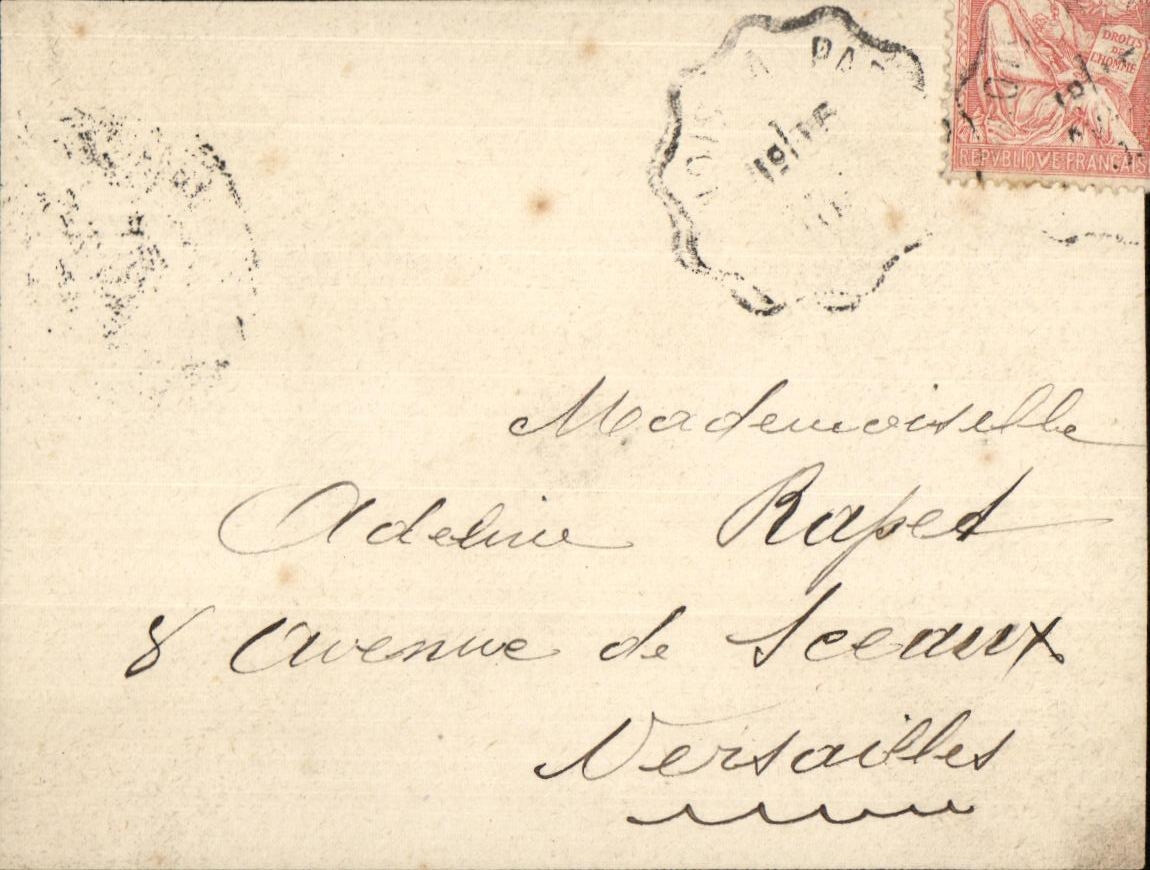 DROITS
DE
L'HOMME
REPVBLIQVE FRANÇAIS
Mademoiselle
Adeline Rapet
8 Avenue de Sceaux
Versailles